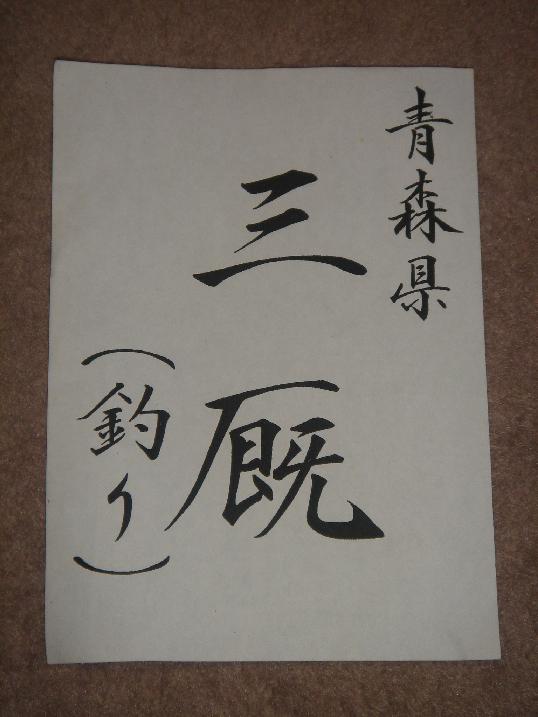 青森県
三厩
（釣り）